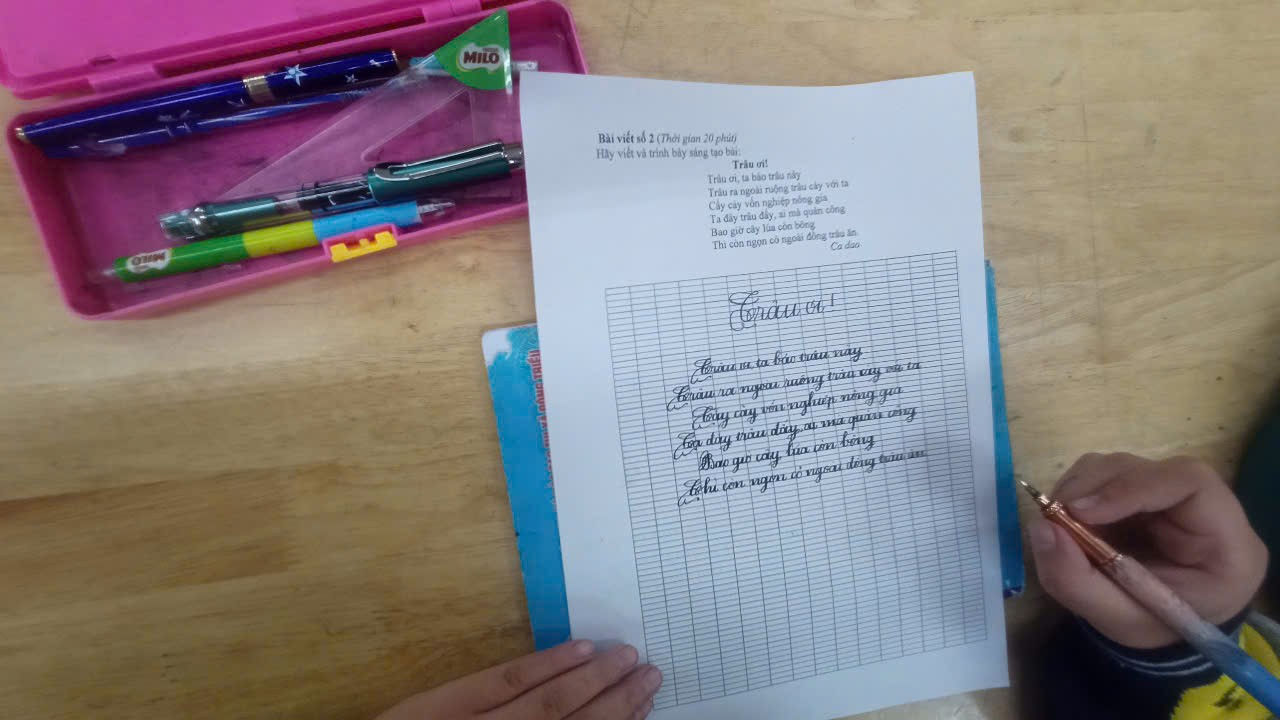 MILO
MILO
Bài viết số 2 (Thời gian 20 phút)
Hãy viết và trình bày sáng tạo bài:
Trâu ơi!
Trâu ơi, ta bảo trâu này
Trâu ra ngoài ruộng trâu cày với ta
Cấy cày vốn nghiệp nông gia
Ta đây trâu đấy, ai mà quản công
Bao giờ cây lúa còn bông
Thì còn ngọn cỏ ngoài đồng trâu ăn.
Ca dao
Trâu ơi!
Trâu ơi, ta bảo trâu này
Trâu ra ngoài ruộng trâu cày với ta
Cấy cày vốn nghiệp nông gia
Ta đây trâu đấy, ai mà quản công
Bao giờ cây lúa còn bông
Thì còn ngọn cỏ ngoài đồng trâu ăn